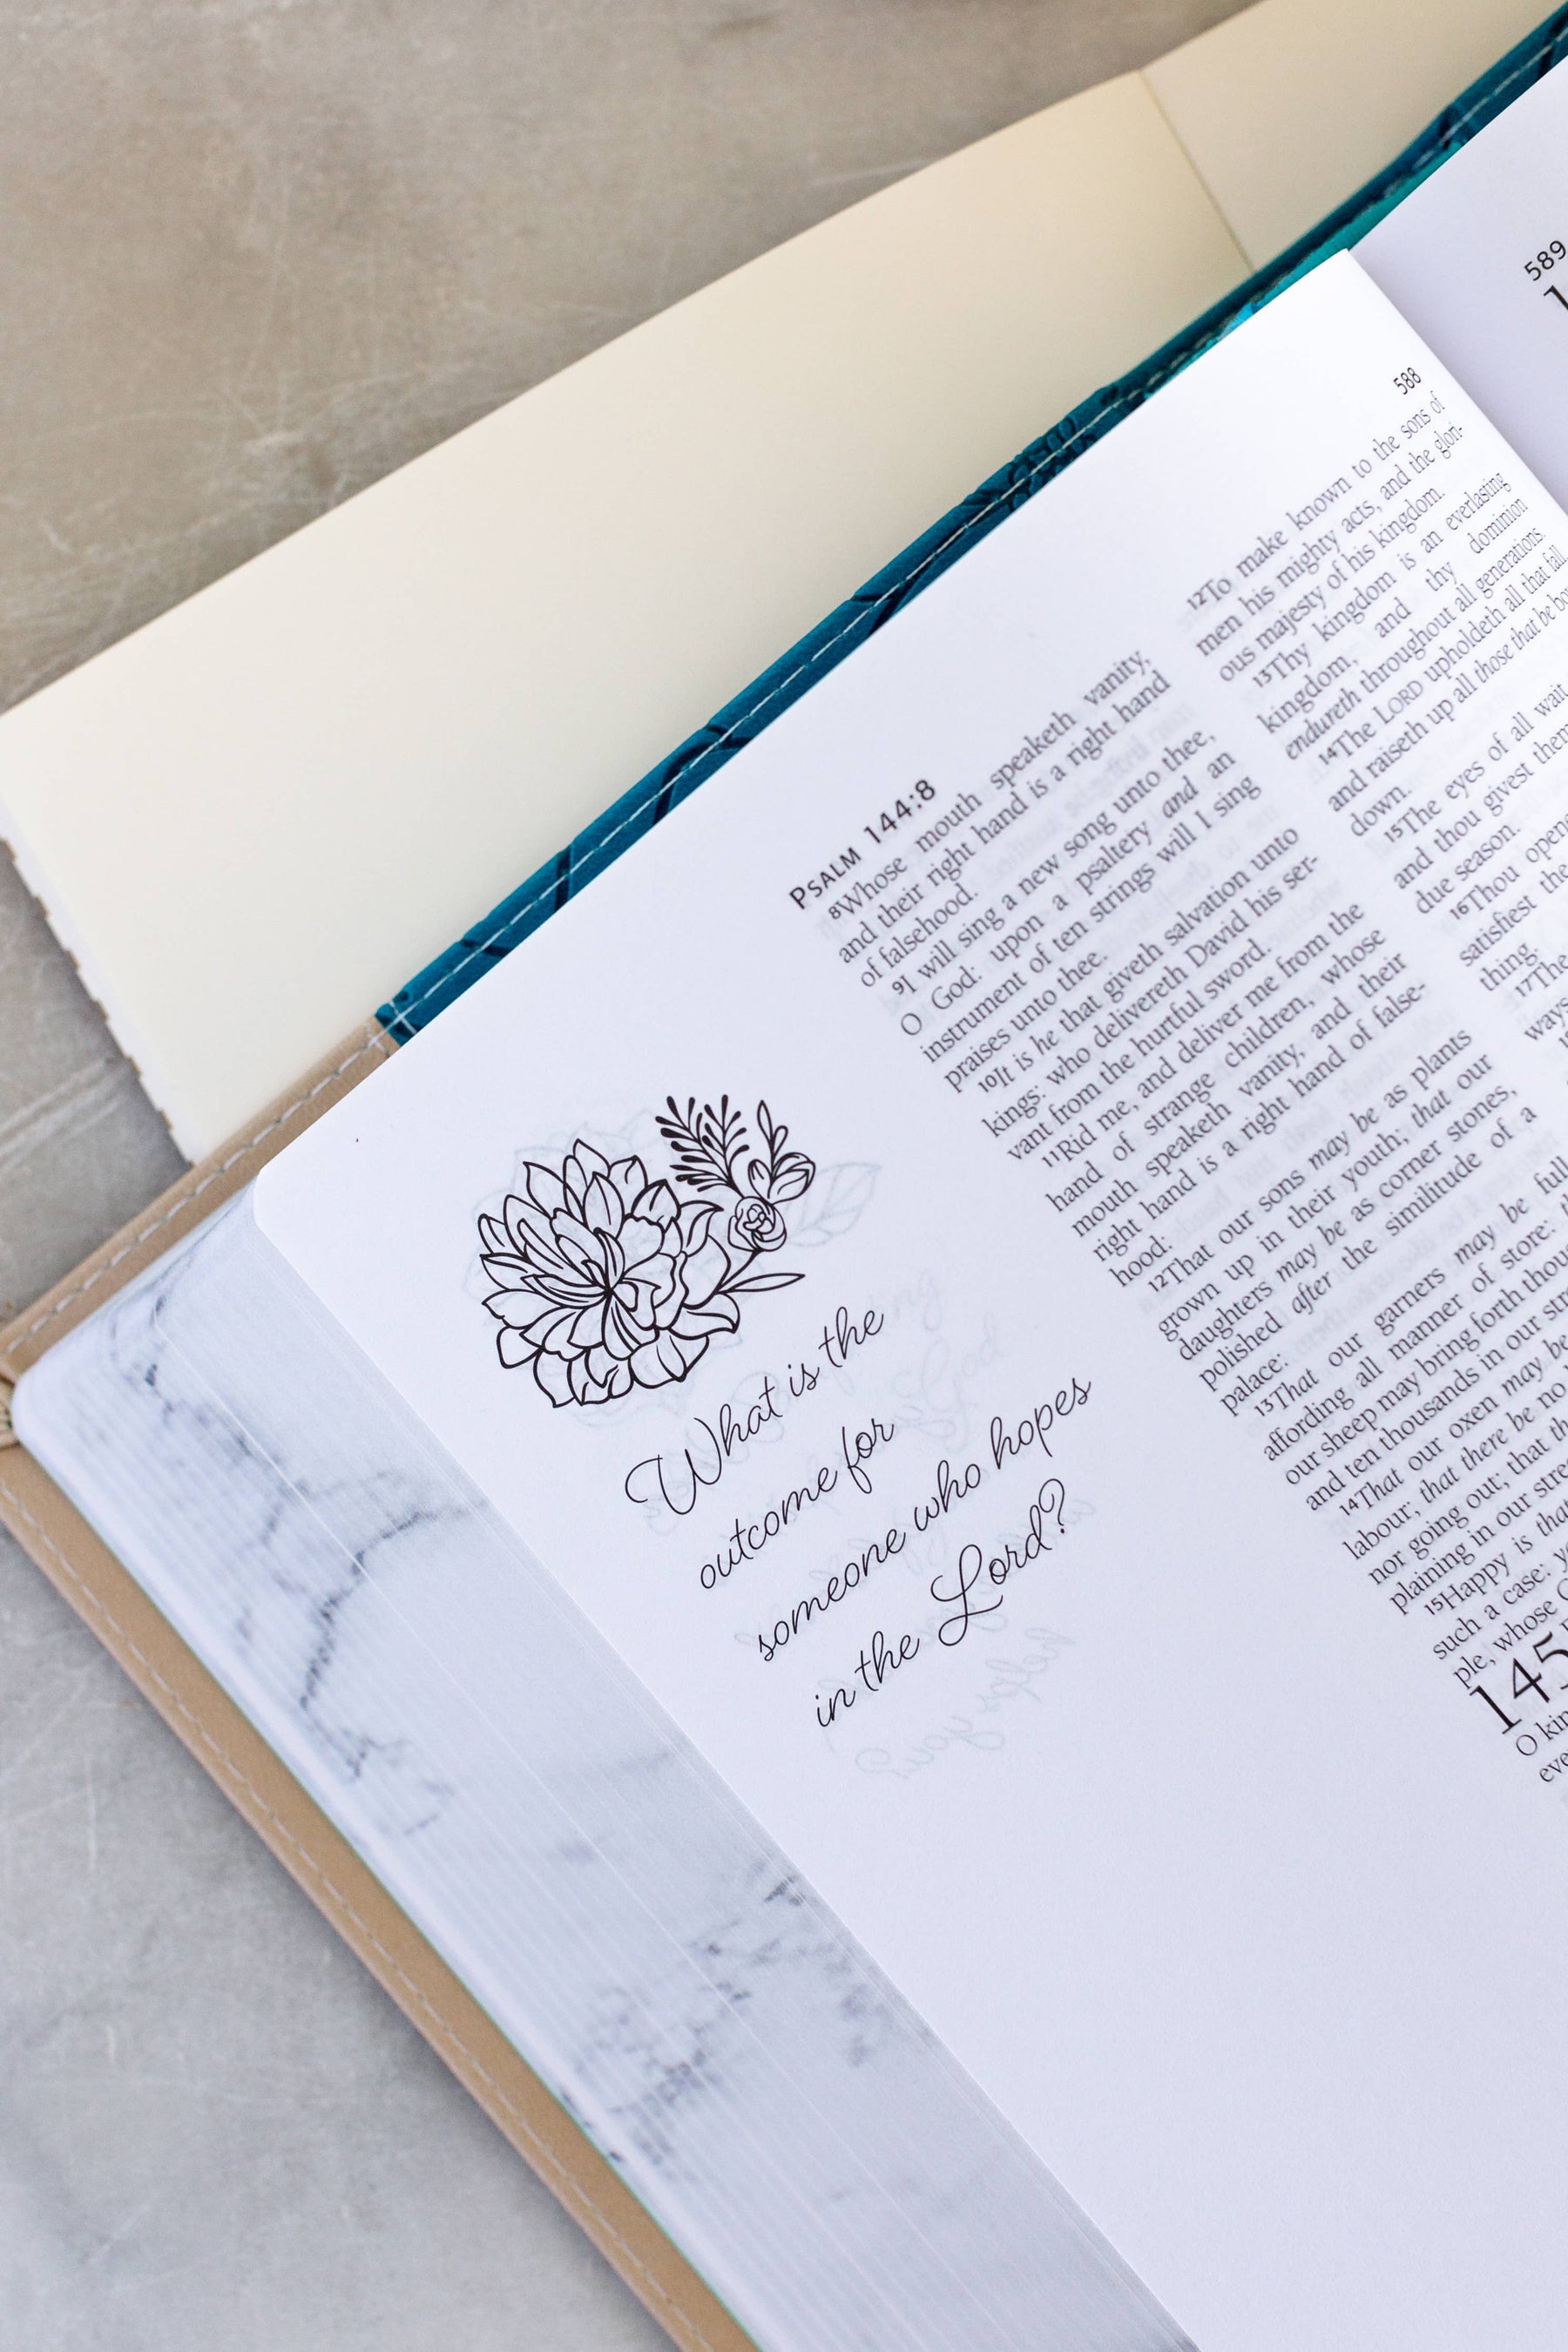 588
PSALM 144:8
8Whose mouth speaketh vanity,
and their right hand is a right hand
of falsehood.
9I will sing a new song unto thee,
O God: upon a psaltery and an
instrument of ten strings will I sing
praises unto thee.
10It is he that giveth salvation unto
kings: who delivereth David his ser-
vant from the hurtful sword.
11Rid me, and deliver me from the
hand of strange children, whose
mouth speaketh vanity, and their
right hand is a right hand of false-
hood:
12That our sons may be as plants
grown up in their youth; that our
daughters may be as corner stones,
polished after the similitude of a
palace:
13That our garners may be full,
affording all manner of store:
our sheep may bring forth
and ten thousands in our
14That our oxen may be
labour; that there be no
nor going out; that
plaining in our
15Happy is that
such a case:
ple, whose
145
O
12To make known to the sons of
men his mighty acts, and the glori-
ous majesty of his kingdom.
13Thy kingdom is an everlasting
kingdom, and thy dominion
endureth throughout all generations.
14The LORD upholdeth all that fall,
and raiseth up all those that be
down.
15The eyes of all wait
and thou givest them
due season.
16Thou
satisfiest the
thing.
17The
ways
What is the
outcome for
someone who hopes
in the Lord?
589